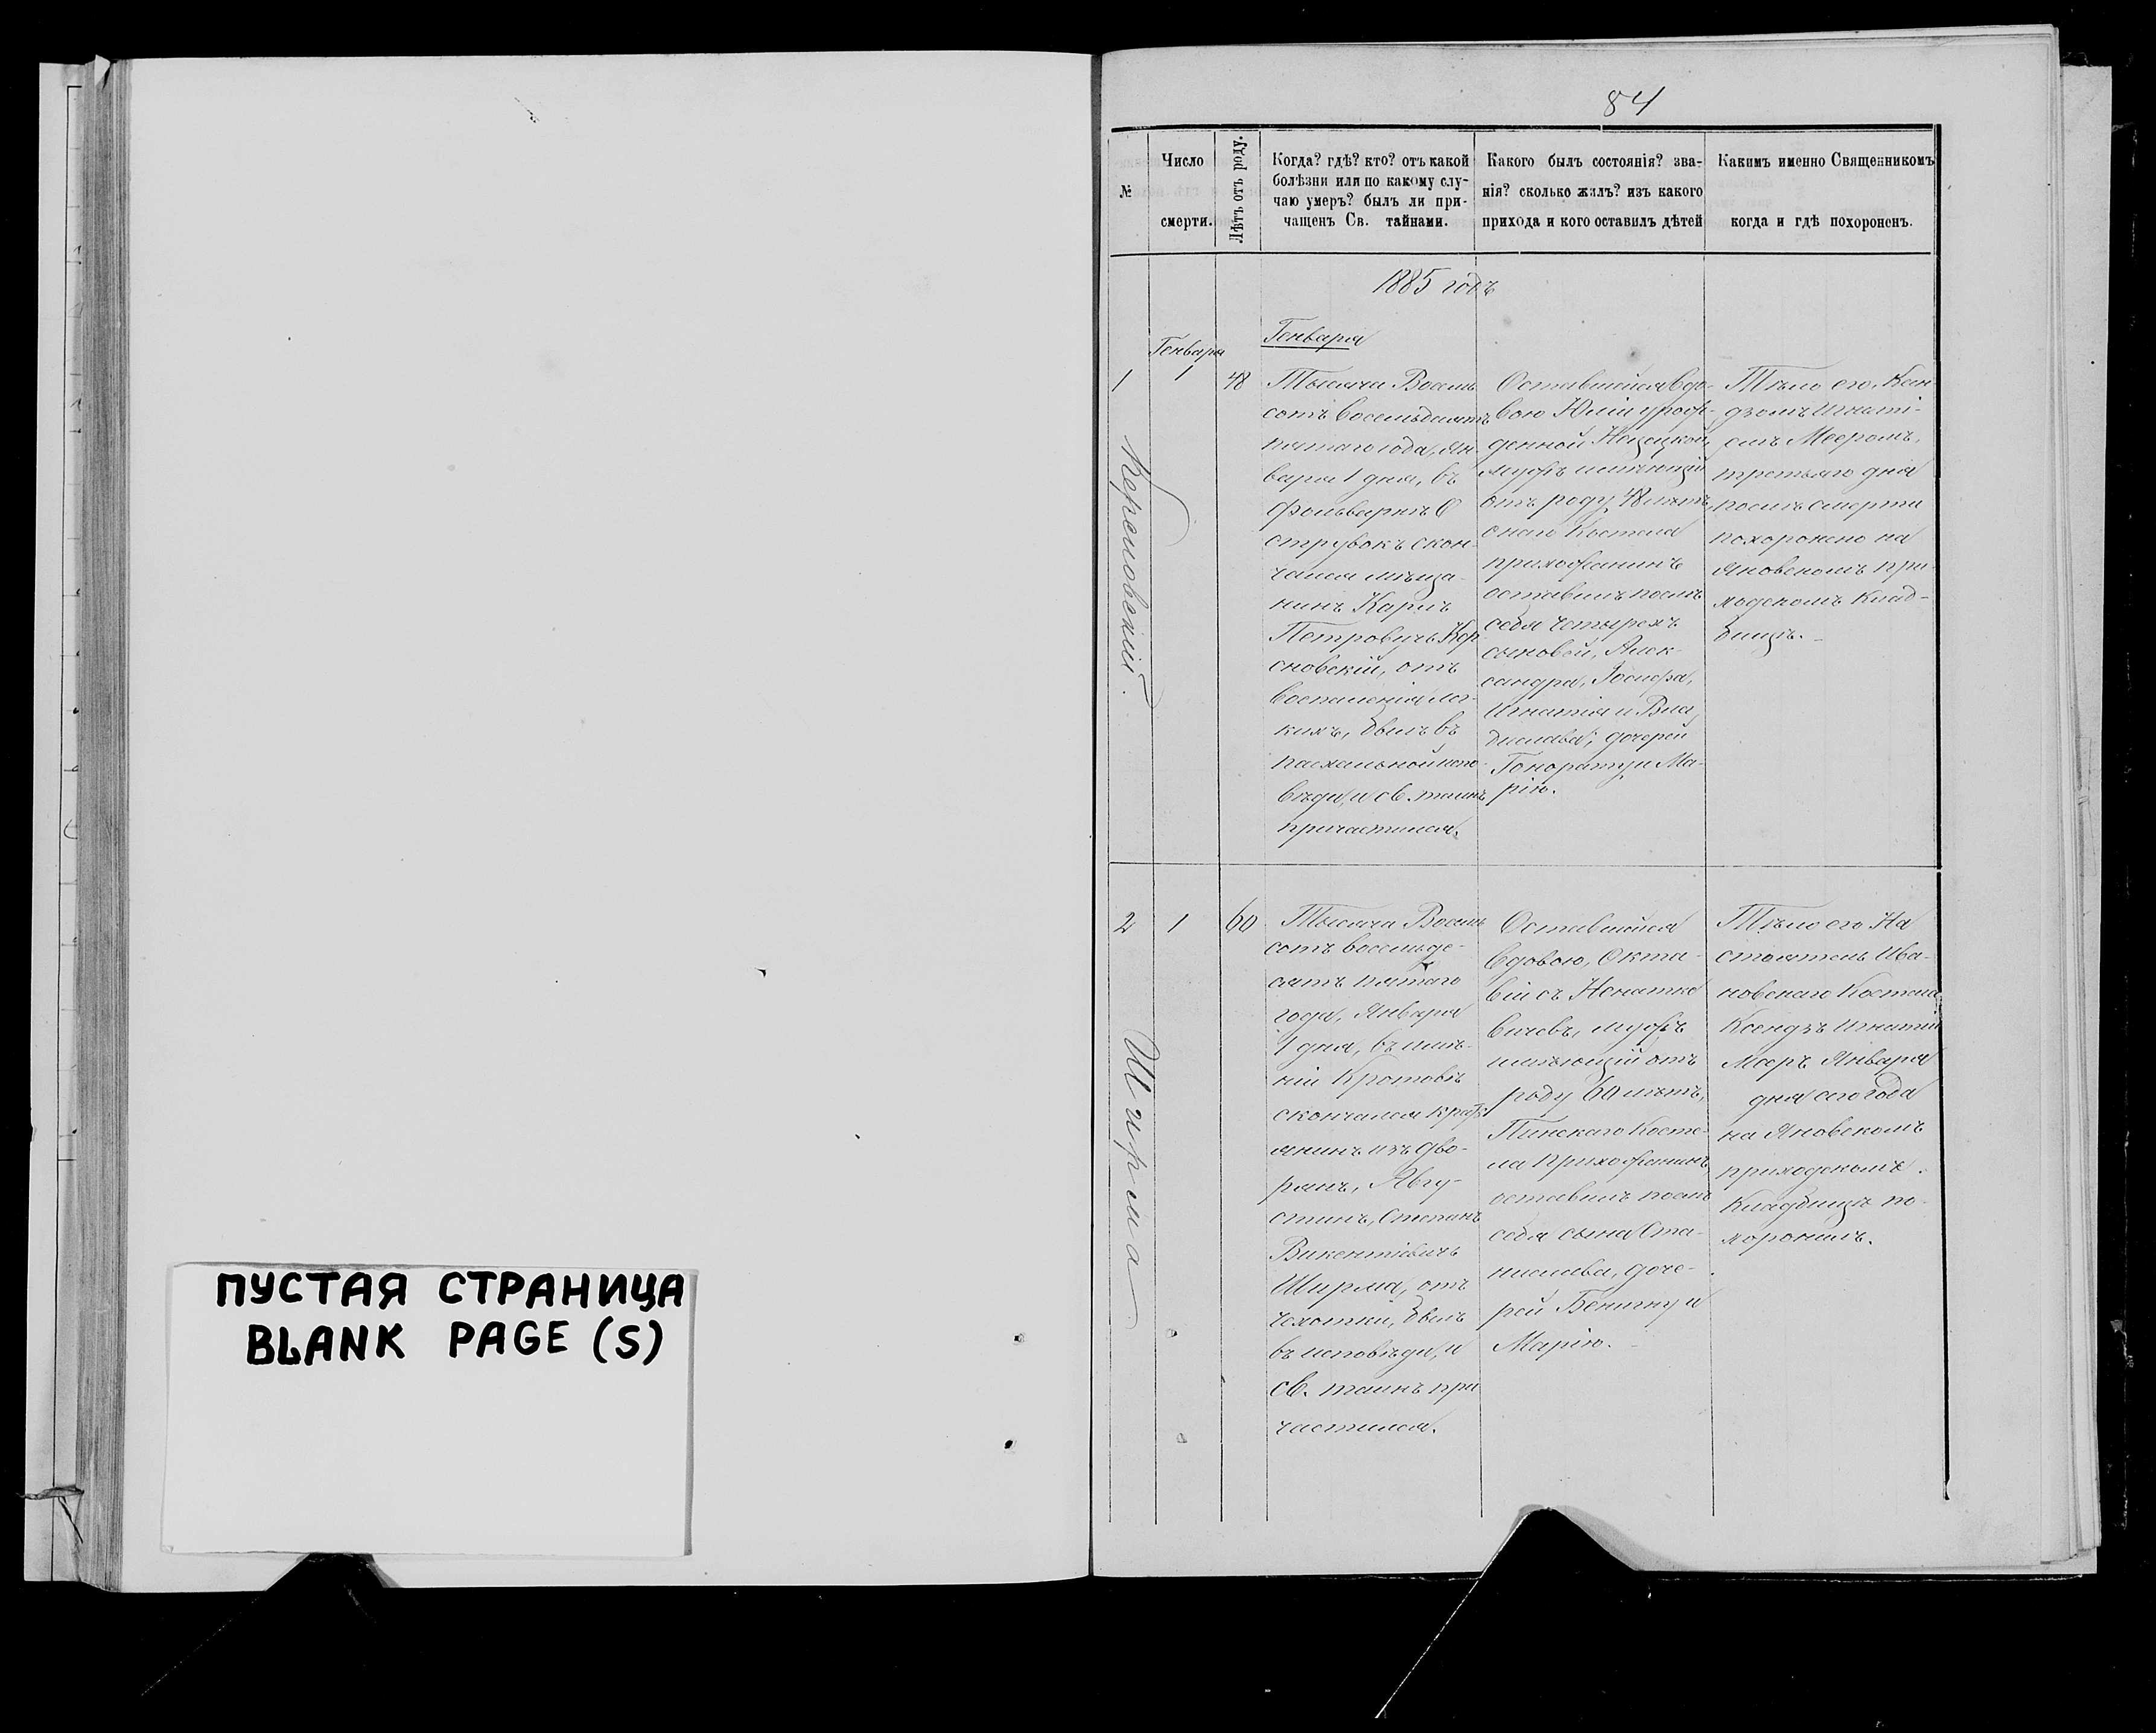 ПУСТАЯ СТРАНИЦА
BLANK PAGE (S)
84
№
Число
смерти.
Лѣтъ отъ роду.
Когда? гдѣ? кто? отъ какой
болѣзни или по какому слу-
чаю умеръ? былъ ли при-
чащенъ Св. тайнами.
Какого былъ состоянія? зва-
нія? сколько жилъ? изъ какого
прихода и кого оставилъ дѣтей
Каким именно Священникомъ
когда и гдѣ похороненъ.
1885 годъ
Генваря
Генваря
1
1
48
Тысяча Восемь
сотъ восемьдесятъ
пятаго года, Ян-
варя 1 дня, въ
фольваркѣ О
струвокъ скон-
чался мѣща-
нинъ Карлъ
Петровичъ Кер
сновскій, отъ
воспаленія лег-
кихъ, былъ въ
пасхальной испо-
вѣди, и св. таинъ
причастился.
Оставшейся вдо-
вою Юліи урож-
денной
мужъ имѣющій
отъ роду 48 лѣтъ
онаго Костела
прихожанинъ
оставилъ послѣ
себя четырехъ
сыновей, Алек-
сандра, Іосифа,
Игнатія и Вла
дислава; дочерей
Гонорату и Ма-
рію.
Тѣло его, Ксен-
дзомъ Игнаті-
емъ Мееромъ,
третьяго дня
послѣ смерти
похоронено на
Яновскомъ при
ходскомъ клад-
бищѣ.
Керсновскій.
2
1
60
Тысяча Восемь
сотъ восемьде-
сятъ пятаго
года, Января
1 дня, въ имѣ-
ніи Кротовѣ
скончался
янинъ изъ дво-
рянъ, Авгу-
стинъ, Степанъ
Викентіевичъ
Ширма, отъ
чахотки, былъ
въ исповѣди, и
св. таинъ при
частился.
Оставшейся
вдовою, Окта-
віи съ
мужъ
имѣющій отъ
роду 60 лѣтъ,
Пинскаго Косте-
ла прихожанинъ,
оставилъ послѣ
себя сына Ста-
нислава, доче-
рей Бенигну и
Марію.
Тѣло его На
стоятель Ива-
новскаго Костела
Ксендзъ Игнатій
Мееръ Января
дня сего года
на Яновскомъ
приходскомъ
Кладбищѣ по-
хоронилъ.
Ширма